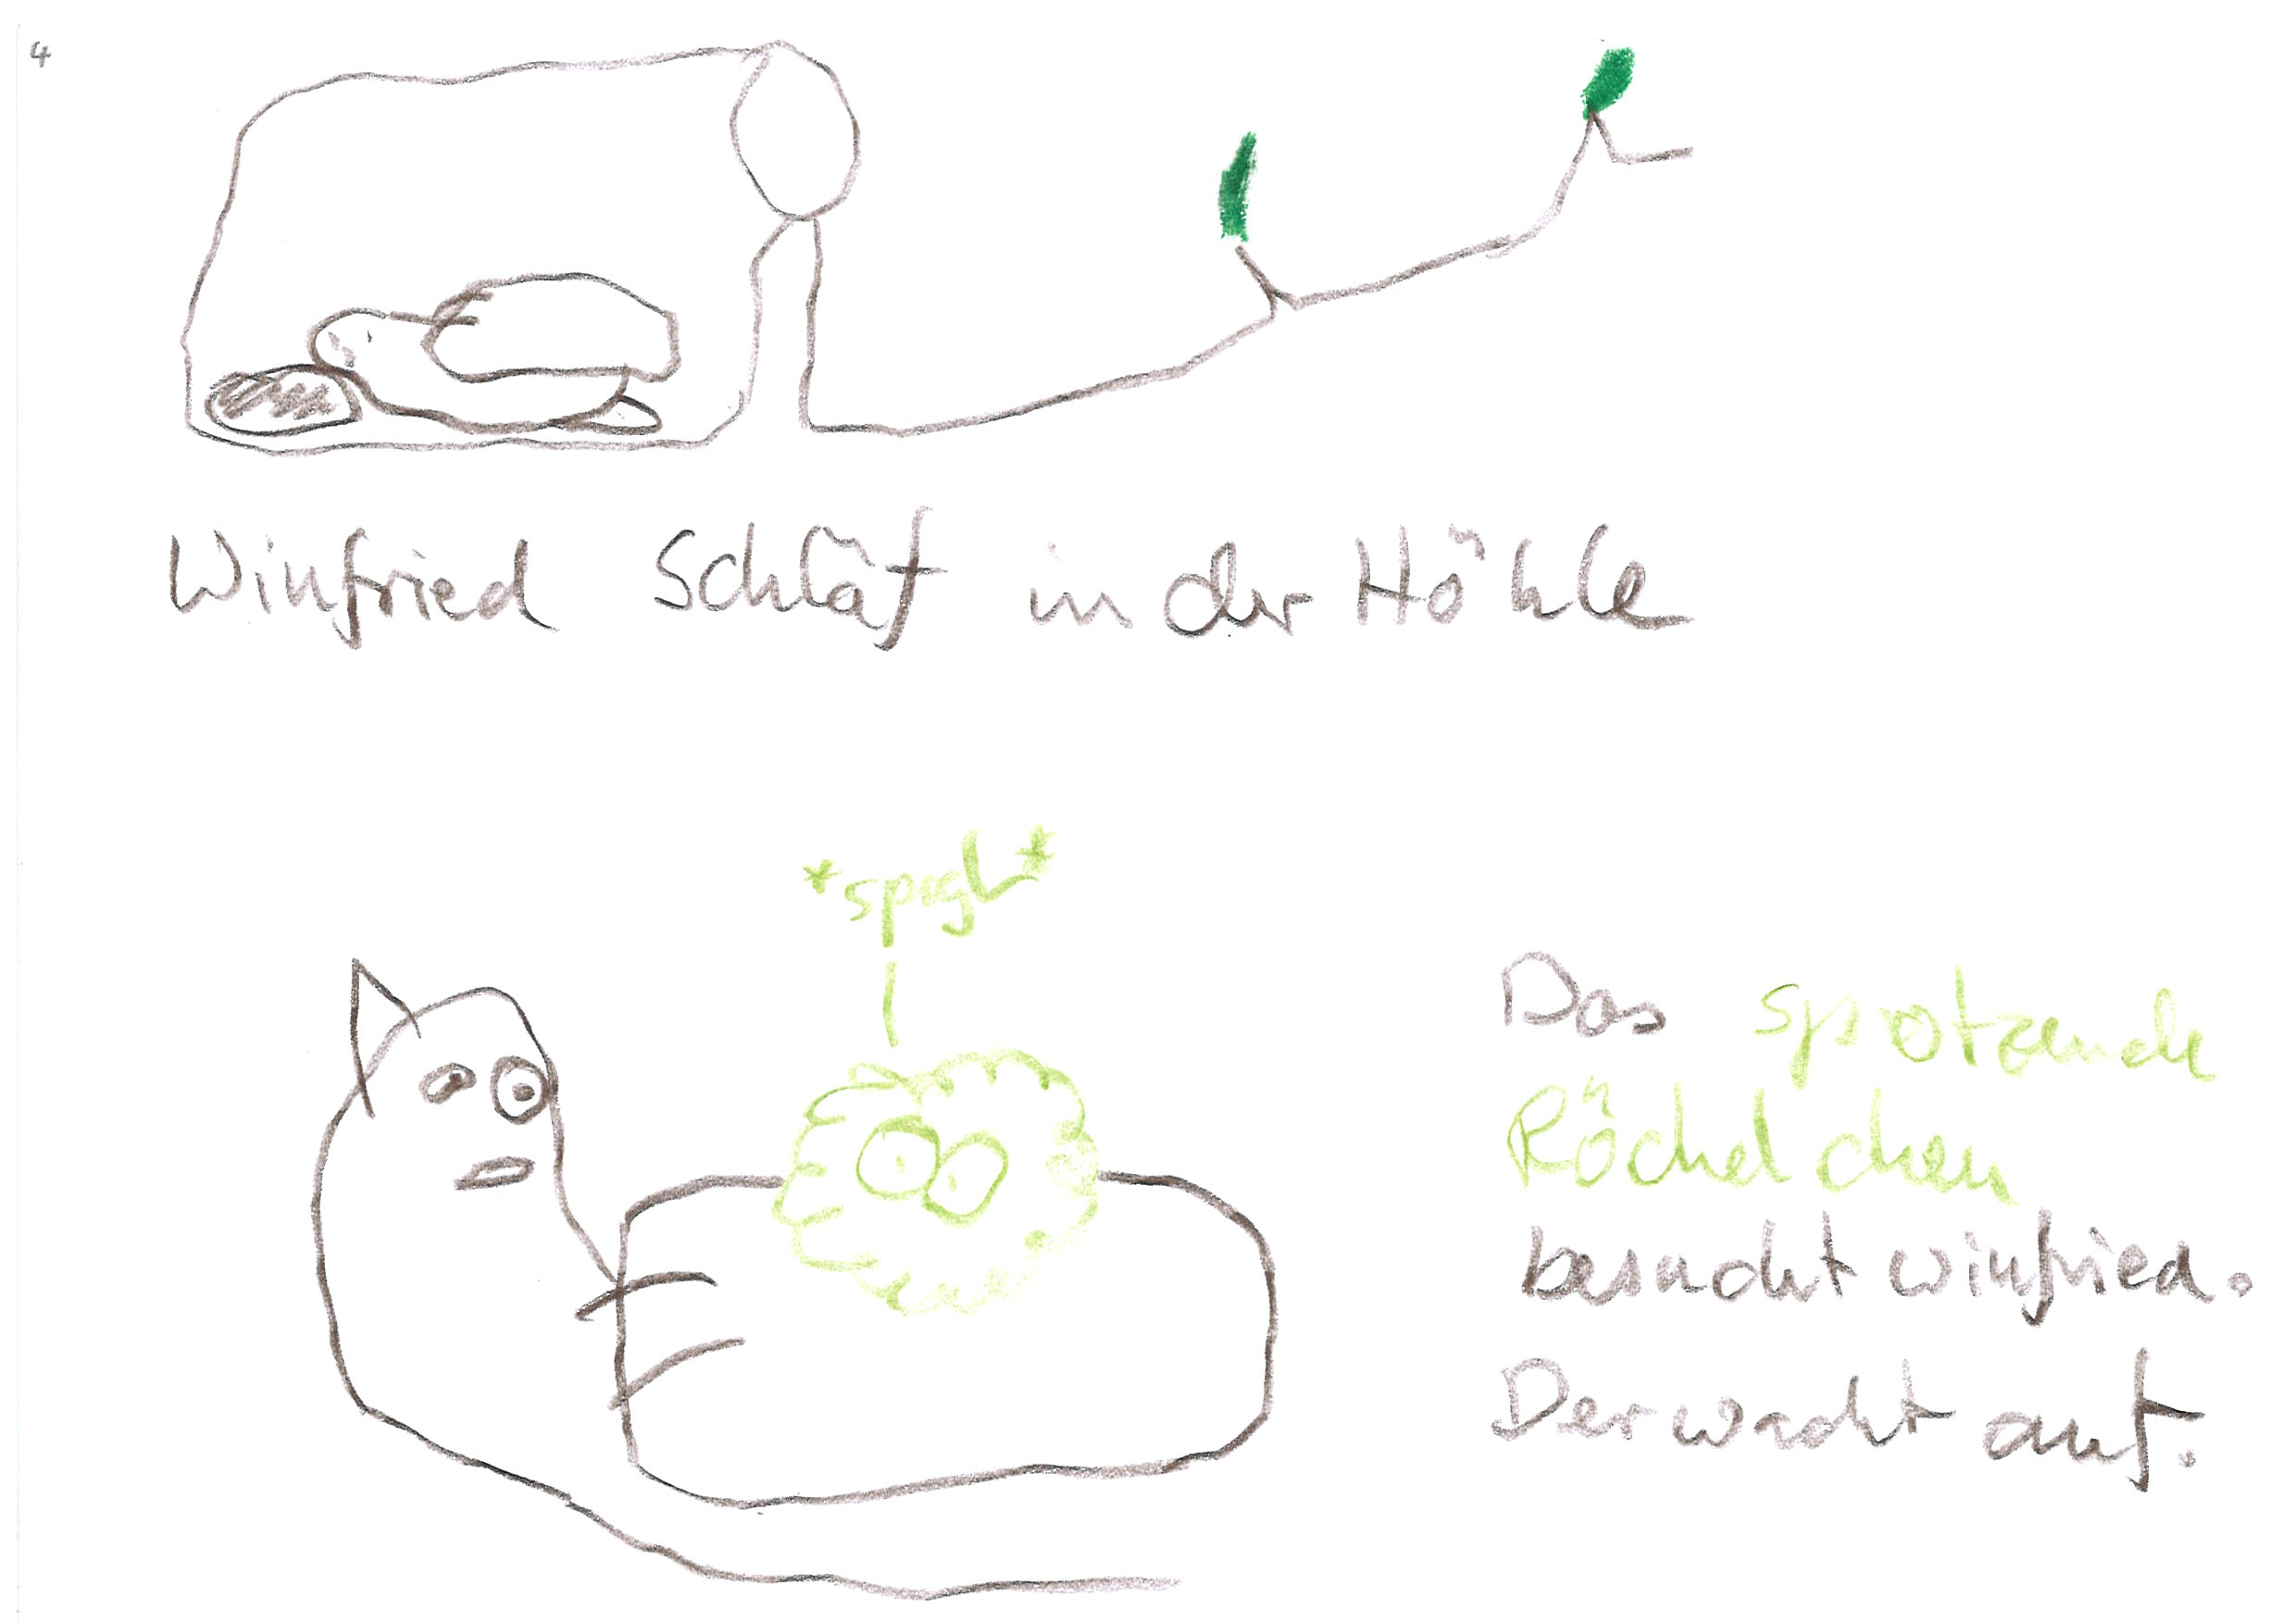 4
Winfried Schläf in der Höhle
*spogl*
Das spotzende
Röchelchen
besucht Winfried.
Der wacht auf.